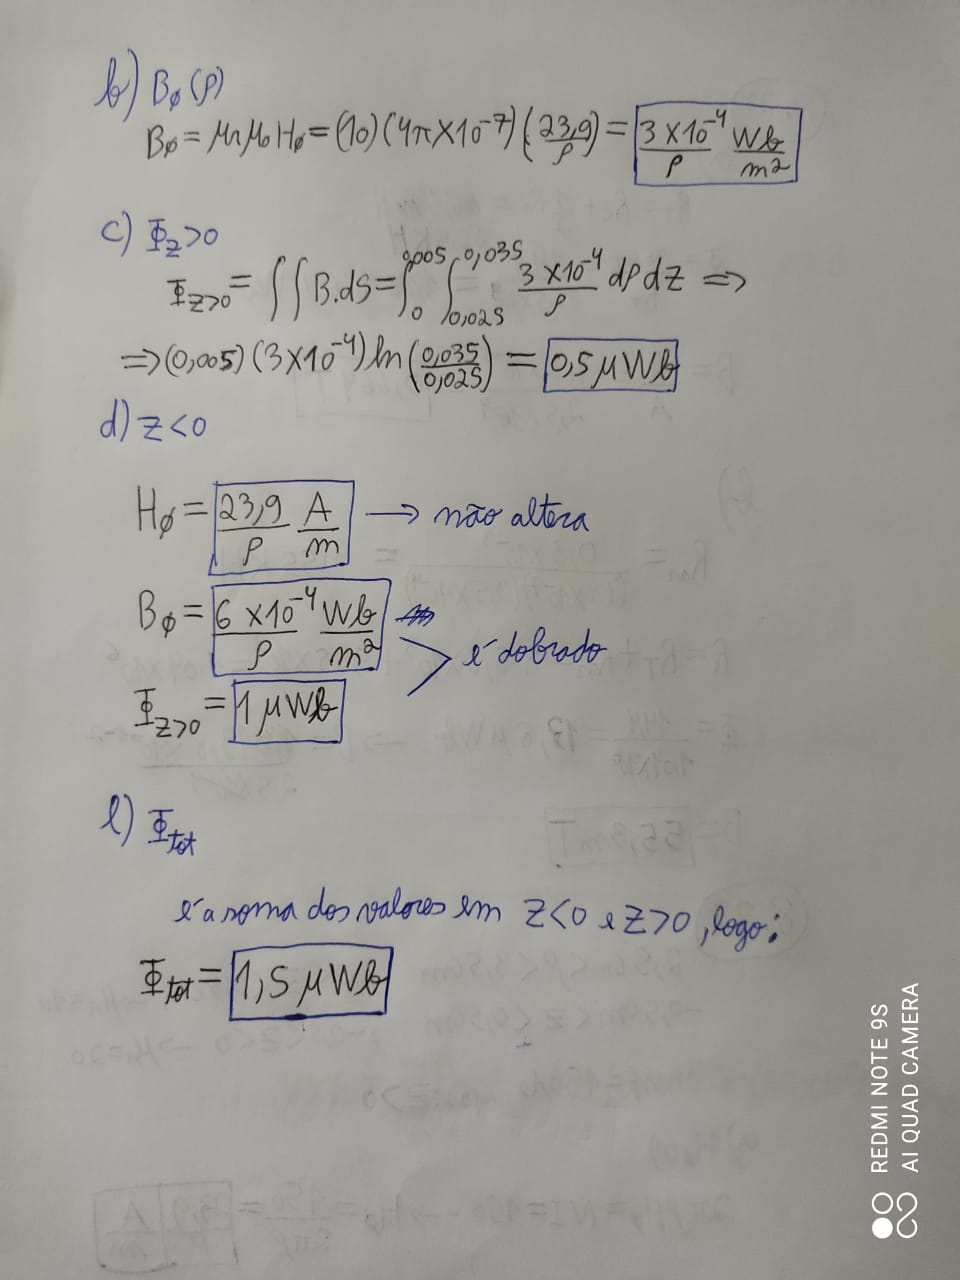 b) Bφ(ρ)
Bφ = μrμ0Hφ = (10)(4π×10⁻⁷)(23,9/ρ) = 3×10⁻⁴/ρ Wb/m²
c) Φz>0
Φz>0 = ∫∫B.dS = ∫₀^0,005 ∫_0,025^0,035 3×10⁻⁴/ρ dρdz ⇒
⇒ (0,005)(3×10⁻⁴)ln(0,035/0,025) = 0,5 μWb
d) z<0
Hφ = 23,9/ρ A/m → não altera
Bφ = 6×10⁻⁴/ρ Wb/m²
é dobrado
Φz>0 = 1 μWb
e) Φtot
é a soma dos valores em z<0 e z>0, logo:
Φtot = 1,5 μWb
REDMI NOTE 9S
AI QUAD CAMERA